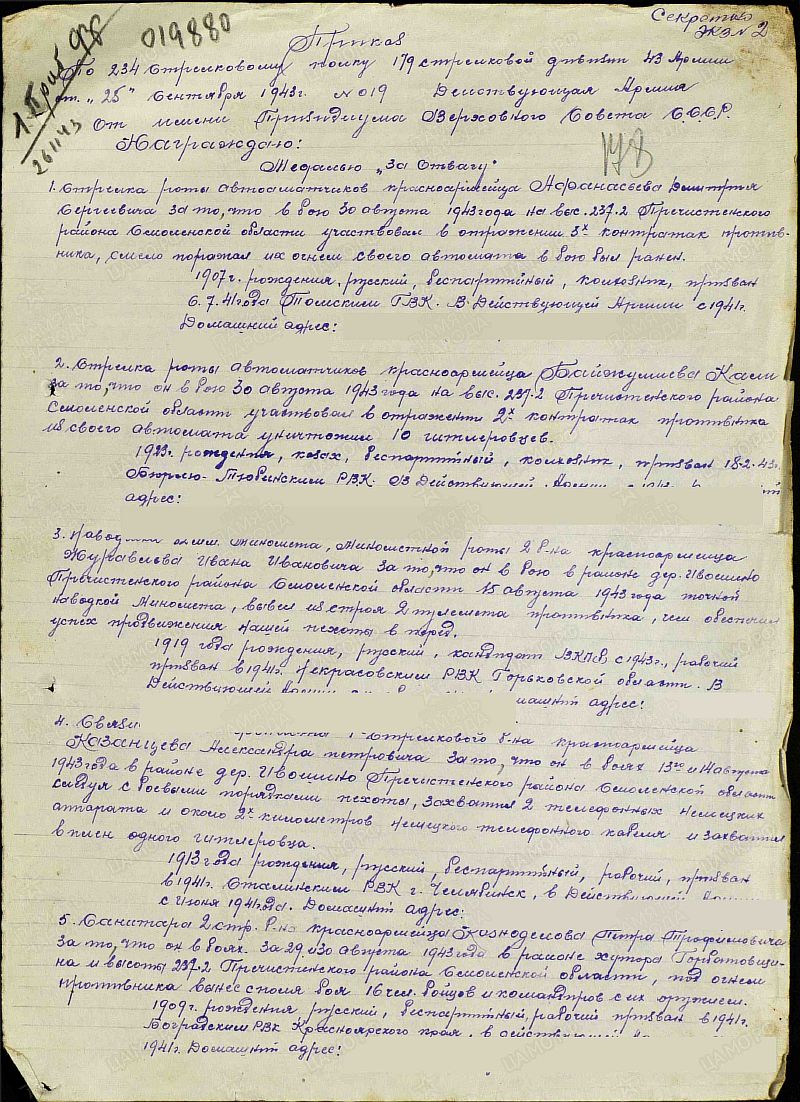 Секретно
Экз № 2
019880
Приказ
По 234 стрелковому полку 179 стрелковой дивизии 43 Армии
от „25" Сентября 1943г. № 019 Действующая Армия
От имени Призидиума Верховного Совета С.С.С.Р.
Награждаю:
Медалью „За Отвагу"
1. Стрелка роты автоматчиков красноармейца Афанасьева Дмитрия
Сергеевича за то, что в бою 30 августа 1943 года на выс. 237.2 Пречистенского
района Смоленской области участвовал в отражении 5х контратак против-
ника, смело поражал их огнем своего автомата в бою был ранен.
1907г. рождения, русский, беспартийный, колхозник, призван
6.7.41года Томским ГВК. В Действующей Армии с 1941г.
Домашний адрес:
2. Стрелка роты автоматчиков красноармейца Байжумиева Каси
за то, что он в бою 30 августа 1943 года на выс. 237-2 Пречистенского района
Смоленской области участвовал в отражении 2х контратак противника
из своего автомата уничтожил 10 гитлеровцев.
1923г. рождения, казах, беспартийный, колхозник, призван 18-2-43г.
РВК. В Действующей
адрес:
3. миномета, Минометной роты 2 б-на красноармейца
Журавлева Ивана Ивановича за то, что он в бою в районе дер. Ивошино
Пречистенского района Смоленской области 15 августа 1943 года точной
наводкой Миномета, вывел из строя 2 пулемета противника, чем обеспечил
успех продвижения нашей пехоты в перед.
1919 года рождения, русский, кандидат ВКПб с 1943г., рабочий
призван в 1941г. Некрасовским РВК Горьковской области. В
Действующей Армии
адрес:
4. Связи
1-Стрелкового б-на красноармейца
Казанцева Александра петровича за то, что он в боях 13го и 14 августа
1943 года в районе дер. Ивошино Пречистенского района Смоленской области
следуя с боевыми порядками пехоты, захватил 2 телефонных немецких
аппарата и около 2х километров немецкого телефонного кабеля и захватил
в плен одного гитлеровца.
1913 года рождения, русский, беспартийный, рабочий, призван
в 1941г. Сталинским РВК г. Челябинск, в Действующей Армии
с Июня 1941года. Домашний адрес:
5. Санитара 2 стр. б-на красноармейца Казноделова Петра Трофимовича
за то, что он в боях за 29 и 30 августа 1943 года в районе хутора Горбатовщи-
на и высоты 237.2 Пречистенского района Смоленской области, под огнем
противника вынес с поля боя 16 чел. бойцов и командиров с их оружием.
1909г. рождения русский, беспартийный, рабочий призван в 1941г.
Боградским РВК Красноярского края. в действующей
1941г. Домашний адрес: